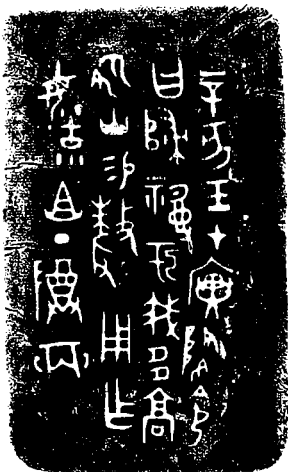 辛亥王才廙降令
曰歸祼于我多高
山易𠩺用乍
毓且丁𬯚